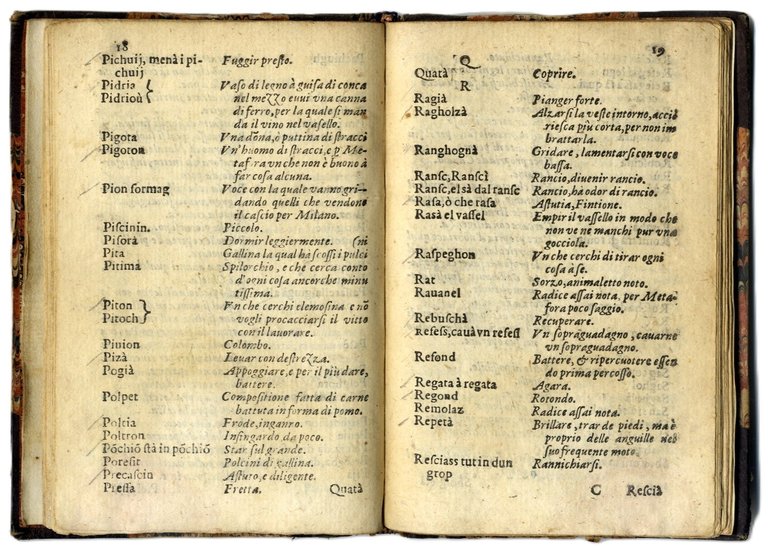 18
Pichuij, menà i pi- Fuggir presto.
chuij
Pidria { Vaso di legno à guisa di conca
Pidrioù nel mezzo euui vna canna
di ferro, per la quale si man
da il vino nel vasello.
Pigota Vna dōna, ò puttina di stracci
Pigoton Vn'huomo di stracci, e p Me-
taf ra vn che non è buono à
far cosa alcuna.
Pion formag Voce con la quale vanno gri-
dando quelli che vendono
il cascio per Milano.
Piscinin. Piccolo.
Pisorà Dormir leggiermente. (ni
Pita Gallina la qual hà scossi i pulci
Pitima Spilorchio, e che cerca conto
d'ogni cosa ancorche minu
tissima.
Piton } Vn che cerchi elemosina e nō
Pitoch vogli procacciarsi il vitto
con il lauorare.
Piuion Colombo.
Pizà Leuar con destrezza.
Pogià Appoggiare, e per il più dare,
battere.
Polpet Compositione fatta di carne
battuta in forma di pomo.
Poltia Frode, inganno.
Poltron Infingardo da poco.
Pōchiō stà in pōchiō Star sul grande.
Poresit Polcini di gallina.
Precascin Astuto, e diligente.
Pressa Fretta. Quatà
19
Q
Quatà Coprire.
R
Ragià Pianger forte.
Ragholzà Alzarsi la veste intorno, acciò
riesca più corta, per non im
brattarla.
Ranghognà Gridare, lamentarsi con voce
bassa.
Ransc, Ranscì Rancio, diuenir rancio.
Ransc, el sà dal ransc Rancio, hà odor di rancio.
Rasa, ò che rasa Astutia, Fintione.
Rasà el vassel Empir il vassello in modo che
non ve ne manchi pur vna
gocciola.
Raspeghon Vn che cerchi di tirar ogni
cosa à se.
Rat Sorzo, animaletto noto.
Rauanel Radice assai nota. per Meta-
fora poco saggio.
Rebuschà Recuperare.
Refess, cauà vn refess Vn sopraguadagno, cauarne
vn sopraguadagno.
Refond Battere, & ripercuotere essen
do prima percosso.
Regata à regata Agara.
Regond Rotondo.
Remolaz Radice assai nota.
Repetà Brillare, trar de piedi, ma è
proprio delle anguille nel
suo frequente moto.
Resciass tut in dun Rannichiarsi.
grop
C Rescià